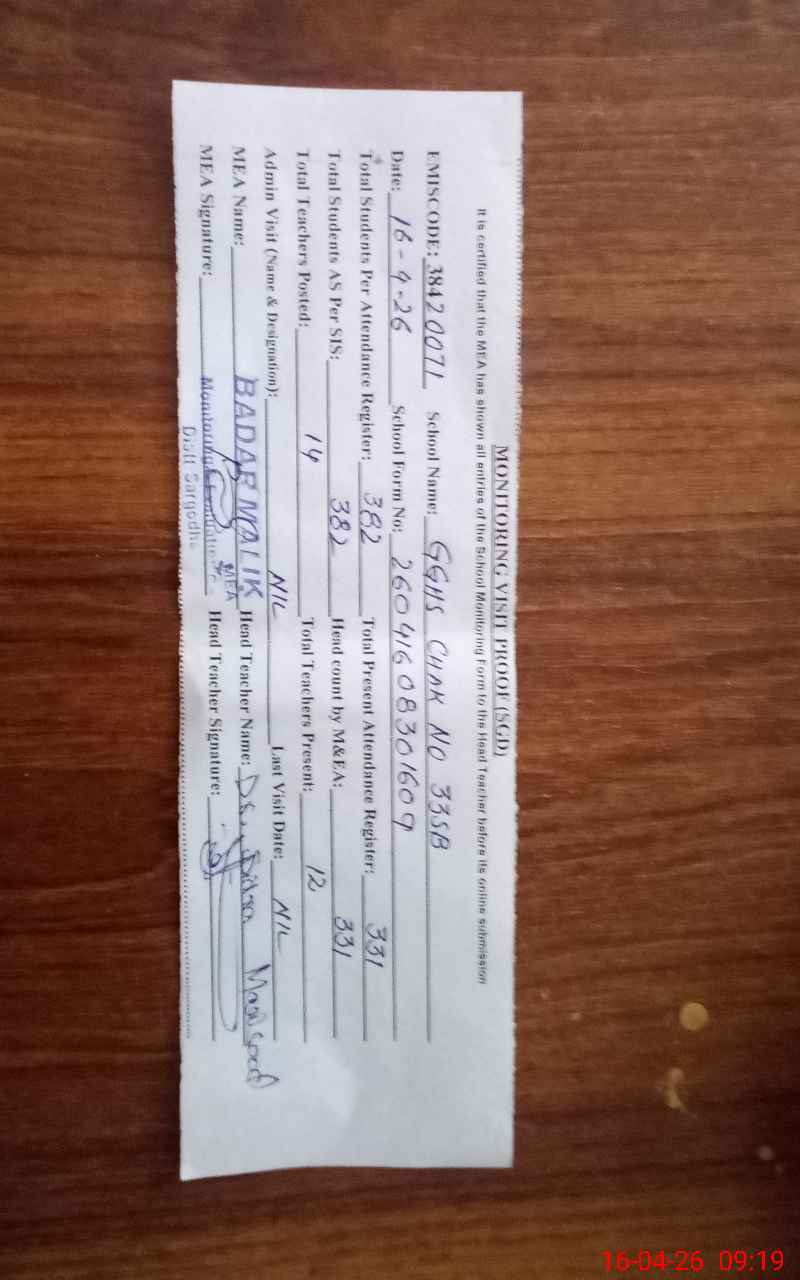 MONITORING VISIT PROOF (SGD)
It is certified that the MEA has shown all entries of the School Monitoring Form to the Head Teacher before its online submission
EMISCODE: 38420071 School Name: GGHS CHAK NO 33SB
Date: 16-4-26 School Form No: 26041608301609
Total Students Per Attendance Register: 382 Total Present Attendance Register: 331
Total Students AS Per SIS: 382 Head count by M&EA: 331
Total Teachers Posted: 14 Total Teachers Present: 12
Admin Visit (Name & Designation): NIL Last Visit Date: NIL
MEA Name: BADAR MALIK MEA Head Teacher Name:
MEA Signature: Monitoring & Head Teacher Signature:
Distt Sargodha
16-04-26 09:19